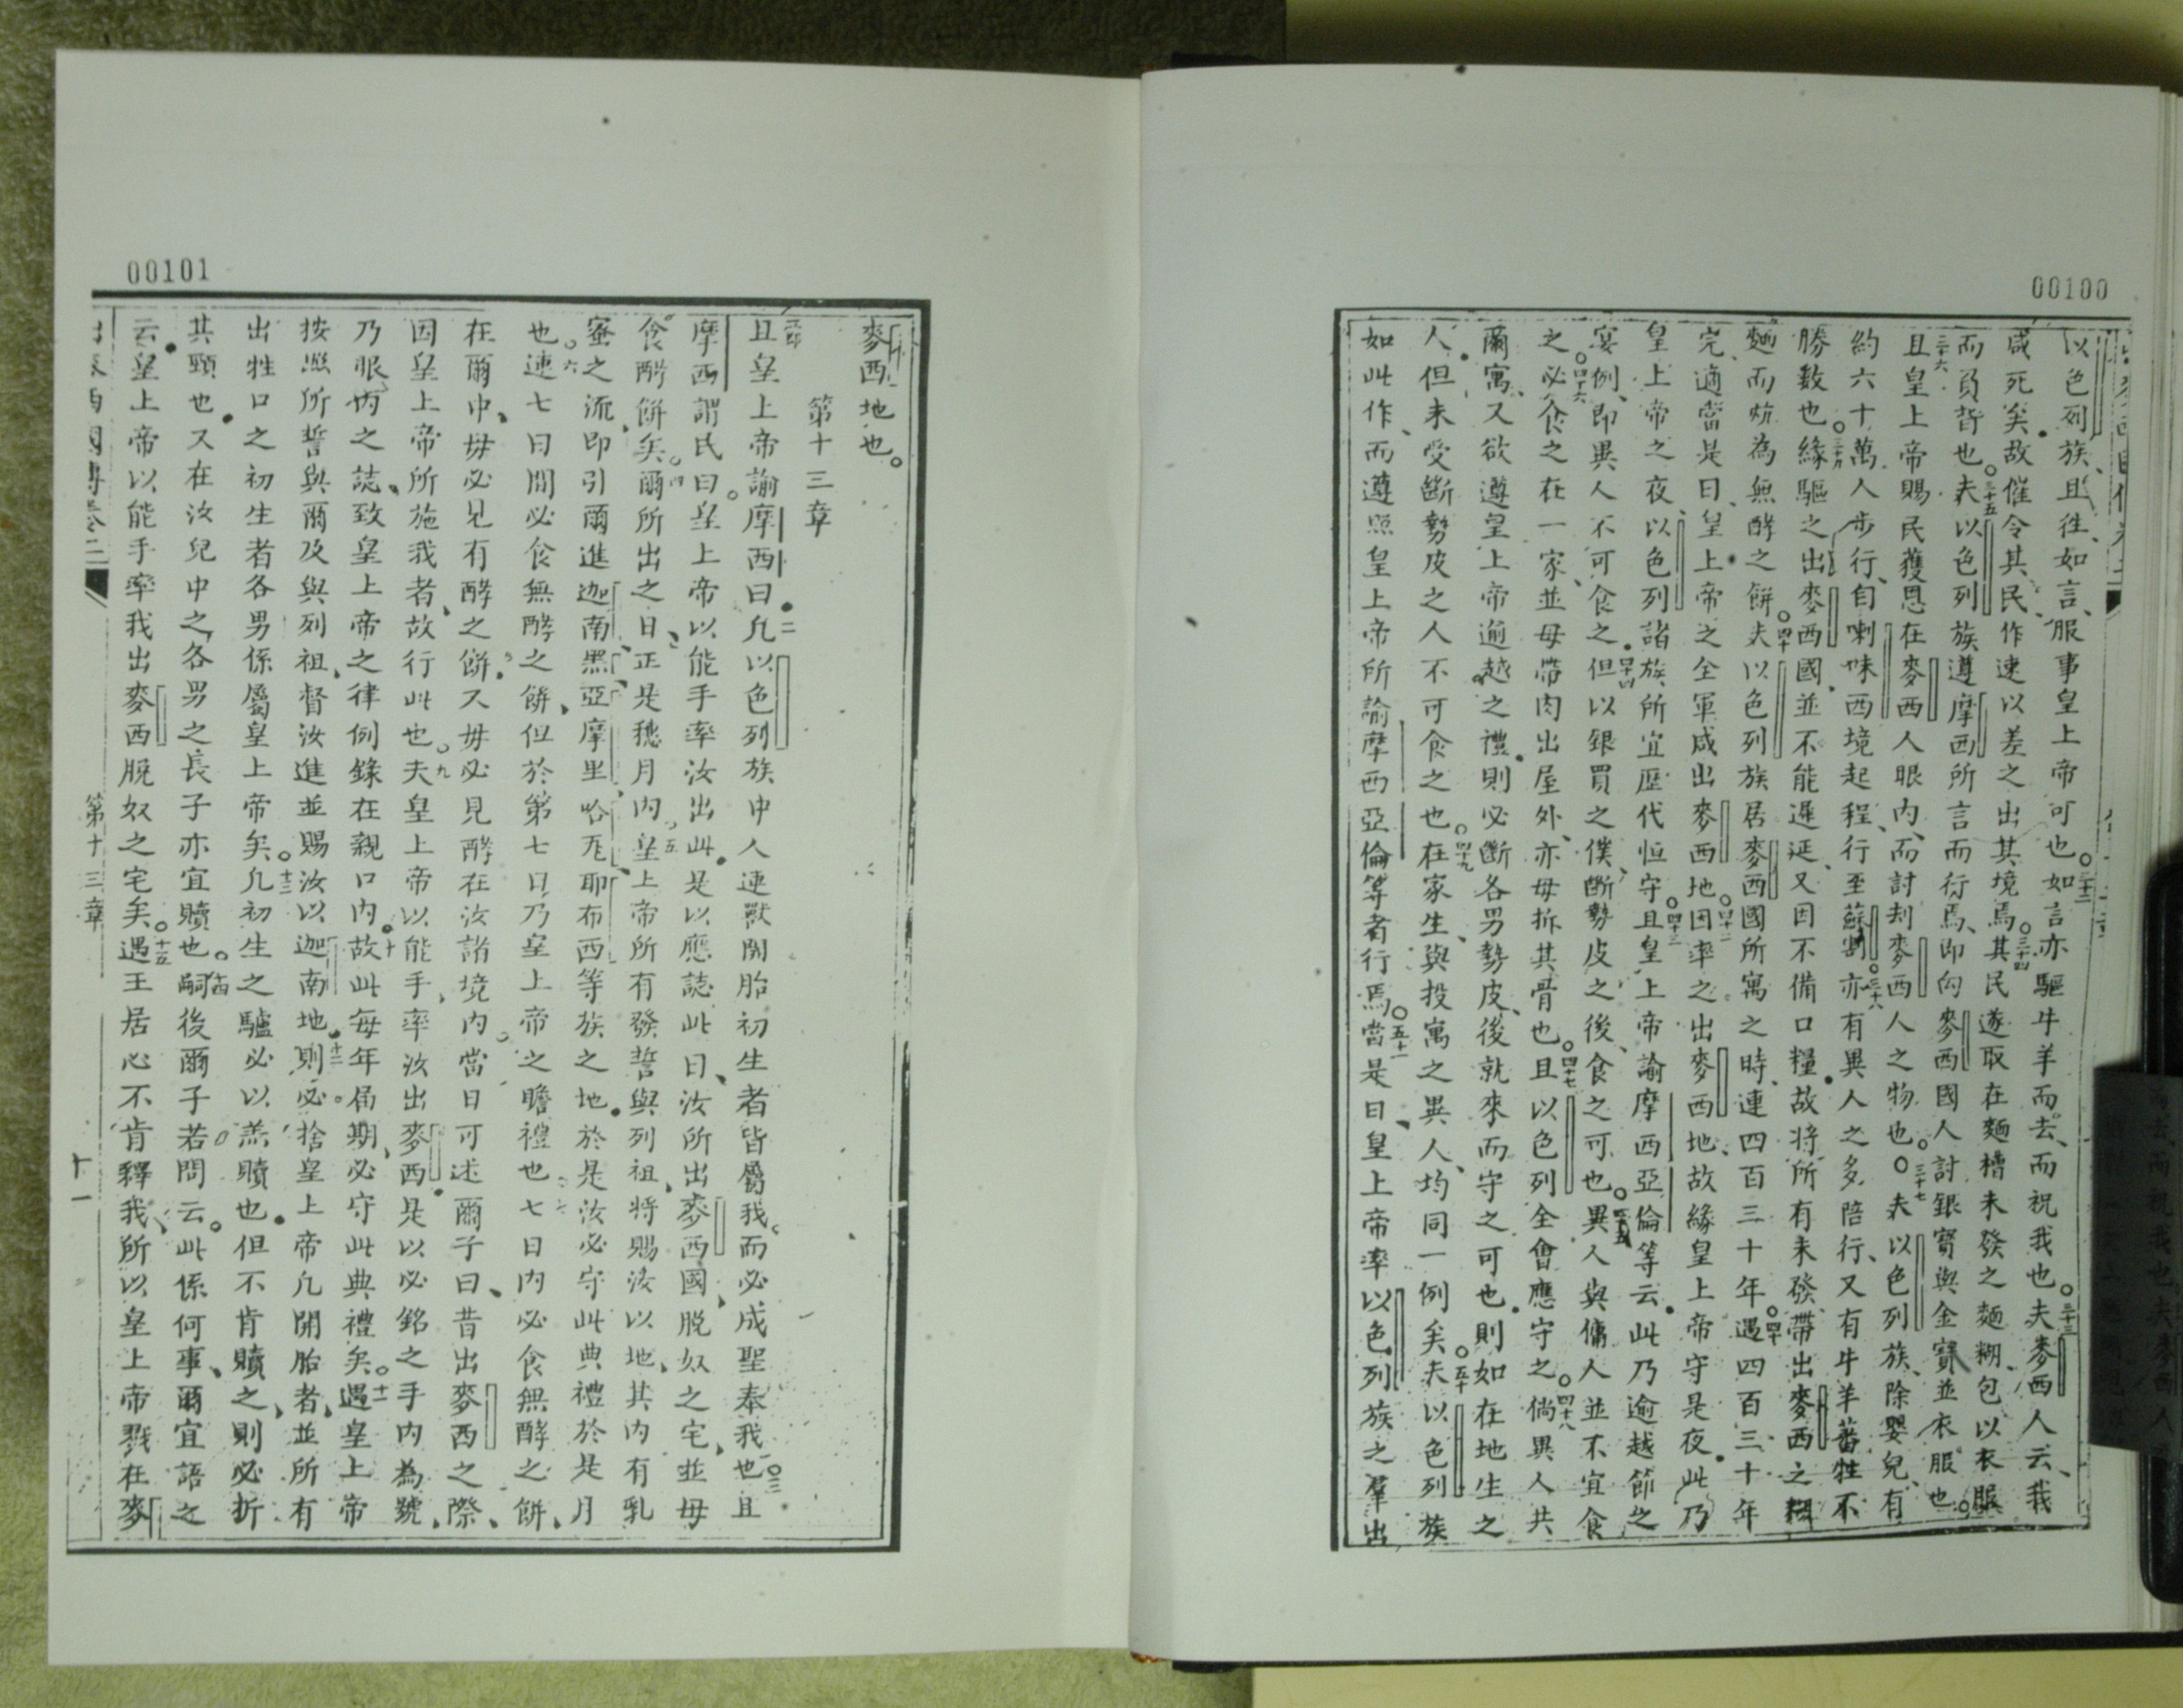 00100
以色列族、且往、如言、服事皇上帝可也。三十二如言亦驅牛羊而去、而祝我也。三十三夫麥西人云、我
咸死矣、故催令其民、作速以差之出其境焉。三十四其民遂取在麵槽未發之麵糊、包以衣服
而負背也。三十五夫以色列族遵摩西所言而行焉、即向麥西國人討銀寶與金寶並衣服也。
三十六且皇上帝賜民獲恩在麥西人眼內、而討刦麥西人之物也。三十七夫以色列族、除嬰兒、有
約六十萬人步行、自喇味西境起程、行至蘇割。三十八亦有異人之多陪行、又有牛羊蕃牲不
勝數也。三十九緣驅之出麥西國、並不能遲延、又因不備口糧、故將所有未發帶出麥西之糊
麵而炕為無酵之餅。四十夫以色列族居麥西國所寓之時、連四百三十年。遇四百三十年
完、適當是日、皇上帝之全軍咸出麥西地。四十二因率之出麥西地、故緣皇上帝守是夜、此乃
皇上帝之夜、以色列諸族所宜歷代恒守。四十三且皇上帝諭摩西亞倫等云、此乃逾越節之
宴例、即異人不可食之。四十四但以銀買之僕、斷勢皮之後、食之可也。四十五異人與傭人並不宜食
之。四十六必食之在一家、並毋帶肉出屋外、亦毋拆其骨也。四十七且以色列全會應守之。四十八倘異人共
爾寓、又欲遵皇上帝逾越之禮、則必斷各男勢皮、後就來而守之可也、則如在地生之
人、但未受斷勢皮之人不可食之也。四十九在家生、與投寓之異人、均同一例矣。五十夫以色列族
如此作、而遵照皇上帝所諭摩西亞倫等者行焉。五十一當是日、皇上帝率以色列族之羣出
00101
麥西地也。
第十三章
一節且皇上帝諭摩西曰、二凡以色列族中人連獸開胎初生者皆屬我、而必成聖奉我也。三且
摩西謂民曰、皇上帝以能手率汝出此、是以應誌此日、汝所出麥西國、脫奴之宅、並毋
食酵餅矣。四爾所出之日、正是穗月內。五皇上帝所有發誓與列祖、將賜汝以地、其內有乳
蜜之流、即引爾進迦南、黑、亞摩里、哈、耶布西等族之地、於是汝必守此典禮於是月
也。六連七日間必食無酵之餅、但於第七日乃皇上帝之瞻禮也。七七日內必食無酵之餅、
在爾中、毋必見有酵之餅、又毋必見酵在汝諸境內。當日可述爾子曰、昔出麥西之際、
因皇上帝所施我者、故行此也。九夫皇上帝以能手、率汝出麥西、是以必銘之手內為號、
乃眼內之誌、致皇上帝之律例錄在親口內。十故此每年屆期、必守此典禮矣。十一遇皇上帝
按照所誓與爾及與列祖、督汝進並賜汝以迦南地、十二則必捨皇上帝凡開胎者、並所有
出牲口之初生者各男係屬皇上帝矣。十三凡初生之驢必以羔贖也、但不肯贖之、則必折
其頸也、又在汝兒中之各男之長子亦宜贖也。十四嗣後爾子若問云、此係何事、爾宜語之
云、皇上帝以能手率我出麥西脫奴之宅矣。十五遇王居心不肯釋我、所以皇上帝戮在麥
第十三章
十一